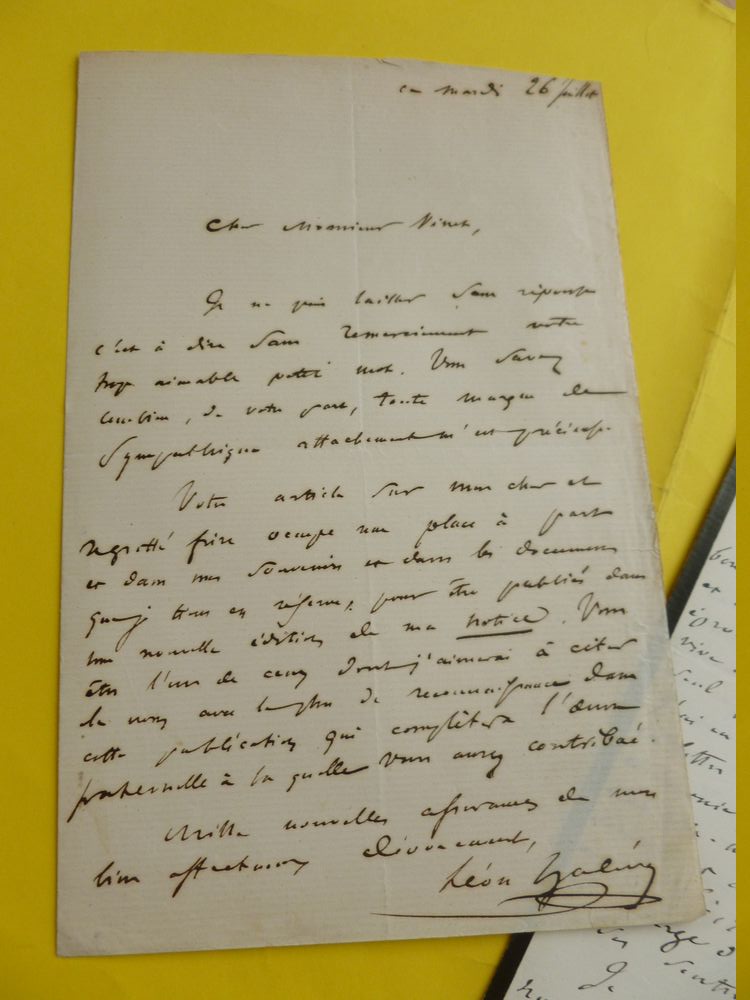 ce mardi 26 juillet
Cher Monsieur Vinet,
Je ne puis laisser sans réponse
c'est à dire sans remerciement votre
trop aimable petit mot. Vous savez
combien, de votre part, toute marque de
sympathique attachement m'est précieuse.
Votre article sur mon cher et
regretté frère occupe une place à part
et dans mes souvenirs et dans les documens
que je tiens en réserve, pour être publiés dans
une nouvelle édition de ma notice. Vous
êtes l'un de ceux dont j'aimerai à citer
le nom avec le plus de reconnaissance dans
cette publication qui complètera l'œuvre
fraternelle à la quelle vous aurez contribué.
Mille nouvelles assurances de mon
bien affectueux dévouement,
Léon Halévy